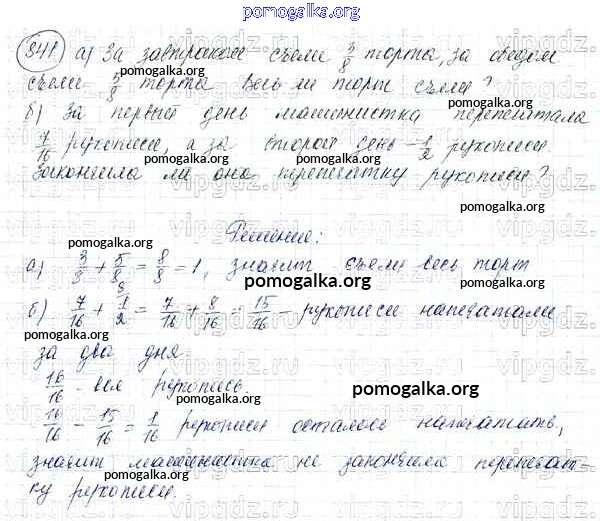 pomogalka.org
841. а) За завтраком съели 3/8 торта, за обедом
съели 5/8 торта. Весь ли торт съели?
pomogalka.org
б) За первый день машинистка перепечатала
7/16 рукописи, а за второй день – 1/2 рукописи.
pomogalka.org
Закончила ли она перепечатку рукописи?
pomogalka.org
Решение:
pomogalka.org
а) 3/8 + 5/8 = 8/8 = 1, значит съели весь торт
pomogalka.org
б) 7/16 + 1/2 = 7/16 + 8/16 = 15/16 – рукописи напечатали
pomogalka.org
за два дня.
16/16 - вся рукопись.
pomogalka.org
16/16 - 15/16 = 1/16 рукописи осталось напечатать,
pomogalka.org
значит машинистка не закончила перепечат-
pomogalka.org
ку рукописи.
vipgdz.ru